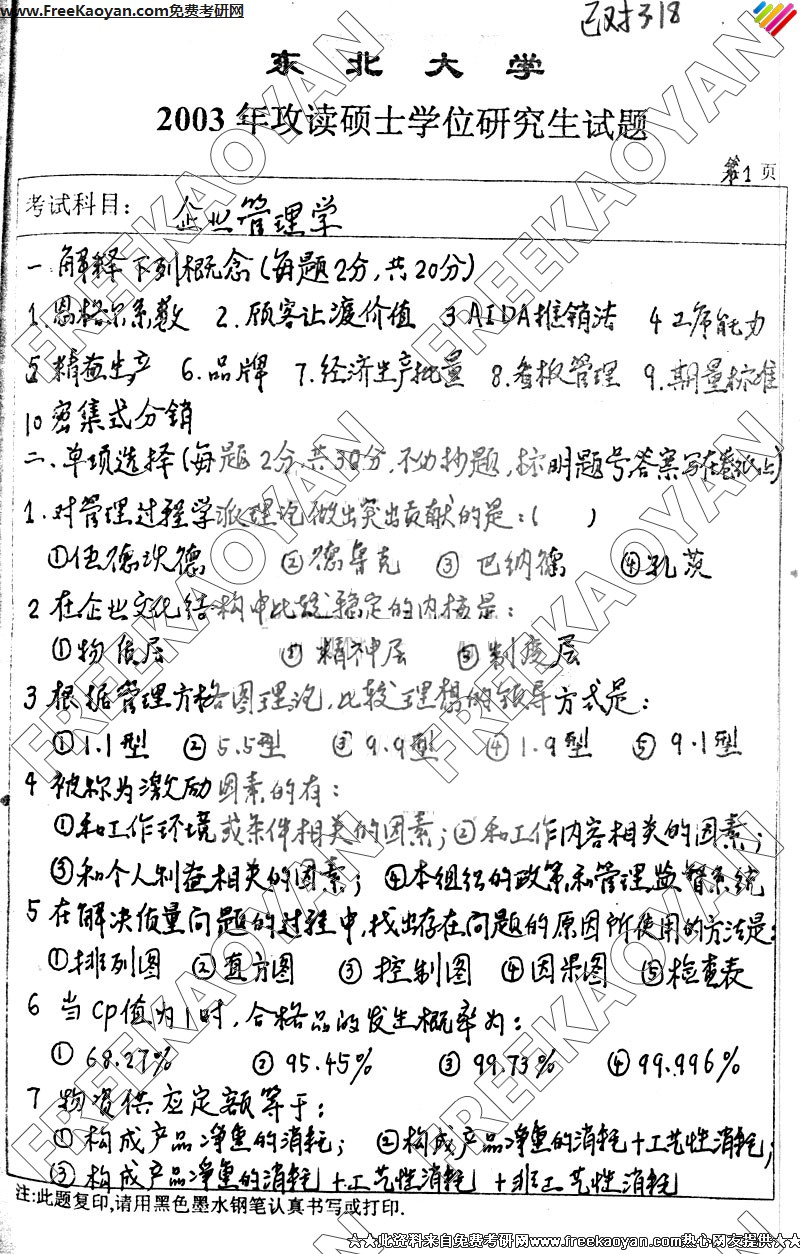 www.FreeKaoyan.com免费考研网
已对 318
东北大学
2003 年攻读硕士学位研究生试题
第1页
考试科目: 企业管理学
一.解释下列概念(每题2分,共20分)
1.恩格尔系数 2.顾客让渡价值 3 AIDA推销法 4 工序能力
5 精益生产 6.品牌 7.经济生产批量 8.看板管理 9.期量标准
10 密集式分销
二.单项选择(每题2分,共30分,不必抄题,标明题号,答案写在卷纸上)
1.对管理过程学派理论做出突出贡献的是:( )
①伍德沃德 ②德鲁克 ③ 巴纳德 ④孔茨
2 在企业文化结构中比较稳定的内核是:
①物质层 ② 精神层 ③制度层
3 根据管理方格图理论,比较理想的领导方式是:
①1.1型 ②5.5型 ③9.9型 ④1.9型 ⑤ 9.1型
4 被称为激励因素的有:
①和工作环境或条件相关的因素;②和工作内容相关的因素;
③和个人利益相关的因素; ④本组织的政策和管理监督系统
5 在解决质量问题的过程中,找出存在问题的原因所使用的方法是:
①排列图 ②直方图 ③ 控制图 ④因果图 ⑤检查表
6 当Cp值为1时,合格品的发生概率为:
① 68.27% ② 95.45% ③ 99.73% ④99.996%
7 物资供应定额等于:
①构成产品净重的消耗; ②构成产品净重的消耗+工艺性消耗;
③构成产品净重的消耗 +工艺性消耗 +非工艺性消耗
注:此题复印,请用黑色墨水钢笔认真书写或打印.
★★此资料来自免费考研网www.freekaoyan.com热心网友提供★★
FREEKAOYAN